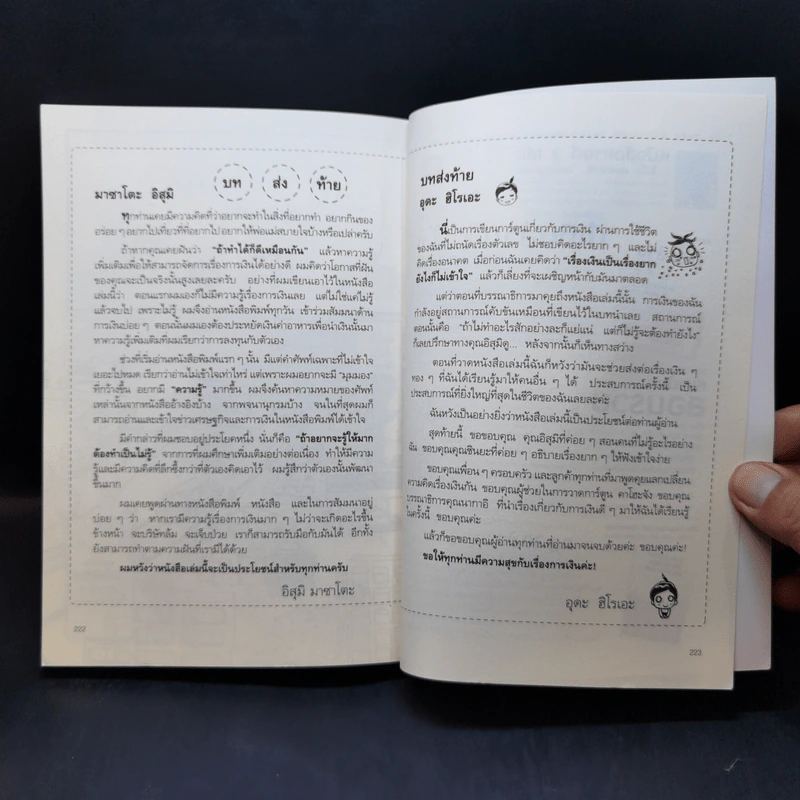 บท ส่ง ท้าย
มาซาโตะ อิสุมิ
ทุกท่านเคยมีความคิดที่ว่าอยากจะทำในสิ่งที่อยากทำ อยากกินของ
อร่อย ๆ อยากไปเที่ยวที่ที่อยากไป อยากให้พ่อแม่สบายใจบ้างหรือเปล่าครับ
ถ้าหากคุณเคยฝันว่า "ถ้าทำได้ก็ดีเหมือนกัน" แล้วหาความรู้
เพิ่มเติมเพื่อให้สามารถจัดการเรื่องการเงินได้อย่างดี ผมคิดว่าโอกาสที่ฝัน
ของคุณจะเป็นจริงนั้นสูงเลยละครับ อย่างที่ผมเขียนเอาไว้ในหนังสือ
เล่มนี้ว่า ตอนแรกผมเองก็ไม่มีความรู้เรื่องการเงินเลย แต่ไม่ใช่แค่ไม่รู้
แล้วจบไป เพราะไม่รู้ ผมจึงอ่านหนังสือพิมพ์ทุกวัน เข้าร่วมสัมมนาด้าน
การเงินบ่อย ๆ ตอนนั้นผมเองต้องประหยัดเงินค่าอาหารเพื่อนำเงินนั้นมา
หาความรู้เพิ่มเติมที่ผมเรียกว่าการลงทุนกับตัวเอง
ช่วงที่เริ่มอ่านหนังสือพิมพ์แรก ๆ นั้น มีแต่คำศัพท์เฉพาะที่ไม่เข้าใจ
เยอะไปหมด เรียกว่าอ่านไม่เข้าใจเท่าไหร่ แต่เพราะผมอยากจะมี "มุมมอง"
ที่กว้างขึ้น อยากมี "ความรู้" มากขึ้น ผมจึงค้นหาความหมายของศัพท์
เหล่านั้นจากหนังสืออ้างอิงบ้าง จากพจนานุกรมบ้าง จนในที่สุดผมก็
สามารถอ่านและเข้าใจข่าวเศรษฐกิจและการเงินในหนังสือพิมพ์ได้เข้าใจ
มีคำกล่าวที่ผมชอบอยู่ประโยคหนึ่ง นั่นก็คือ "ถ้าอยากจะรู้ให้มาก
ต้องทำเป็นไม่รู้" จากการที่ผมศึกษาเพิ่มเติมอย่างต่อเนื่อง ทำให้มีความ
รู้และมีความคิดที่ลึกซึ้งกว่าที่ตัวเองคิดเอาไว้ ผมรู้สึกว่าตัวเองนั้นพัฒนา
ขึ้นมาก
ผมเคยพูดผ่านทางหนังสือพิมพ์ หนังสือ และในการสัมมนาอยู่
บ่อย ๆ ว่า หากเรามีความรู้เรื่องการเงินมาก ๆ ไม่ว่าจะเกิดอะไรขึ้น
ข้างหน้า จะบริษัทล้ม จะเจ็บป่วย เราก็สามารถรับมือกับมันได้ อีกทั้ง
ยังสามารถทำตามความฝันที่เรามีได้ด้วย
ผมหวังว่าหนังสือเล่มนี้จะเป็นประโยชน์สำหรับทุกท่านครับ
อิสุมิ มาซาโตะ
222
บทส่งท้าย
อุดะ ฮิโรเอะ
นี่เป็นการเขียนการ์ตูนเกี่ยวกับการเงิน ผ่านการใช้ชีวิต
ของฉันที่ไม่ถนัดเรื่องตัวเลข ไม่ชอบคิดอะไรยาก ๆ และไม่
คิดเรื่องอนาคต เมื่อก่อนฉันเคยคิดว่า "เรื่องเงินเป็นเรื่องยาก
ยังไงก็ไม่เข้าใจ" แล้วก็เลี่ยงที่จะเผชิญหน้ากับมันมาตลอด
แต่ว่าตอนที่บรรณาธิการมาคุยถึงหนังสือเล่มนี้นั้น การเงินของฉัน
กำลังอยู่สถานการณ์คับขันเหมือนที่เขียนไว้ในบทนำเลย สถานการณ์
ตอนนั้นคือ "ถ้าไม่ทำอะไรสักอย่างละก็แย่แน่ แต่ก็ไม่รู้จะต้องทำยังไง"
ก็เลยปรึกษาทางคุณอิสุมิดู... หลังจากนั้นก็เห็นทางสว่าง
ตอนที่วาดหนังสือเล่มนี้ฉันก็หวังว่ามันจะช่วยส่งต่อเรื่องเงิน ๆ
ทอง ๆ ที่ฉันได้เรียนรู้มาให้คนอื่น ๆ ได้ ประสบการณ์ครั้งนี้ เป็น
ประสบการณ์ที่ยิ่งใหญ่ที่สุดในชีวิตของฉันเลยละค่ะ
ฉันหวังเป็นอย่างยิ่งว่าหนังสือเล่มนี้เป็นประโยชน์ต่อท่านผู้อ่าน
สุดท้ายนี้ ขอขอบคุณ คุณอิสุมิที่ค่อย ๆ สอนคนที่ไม่รู้อะไรอย่าง
ฉัน ขอบคุณคุณชินยะที่ค่อย ๆ อธิบายเรื่องยาก ๆ ให้ฟังเข้าใจง่าย
ขอบคุณเพื่อน ๆ ครอบครัว และลูกค้าทุกท่านที่มาพูดคุยแลกเปลี่ยน
ความคิดเรื่องเงินกัน ขอบคุณผู้ช่วยในการวาดการ์ตูน คาโฮะจัง ขอบคุณ
บรรณาธิการคุณนากาอิ ที่นำเรื่องเกี่ยวกับการเงินดี ๆ มาให้ฉันได้เรียนรู้
ในครั้งนี้ ขอบคุณค่ะ
แล้วก็ขอขอบคุณผู้อ่านทุกท่านที่อ่านมาจนจบด้วยค่ะ ขอบคุณค่ะ!
ขอให้ทุกท่านมีความสุขกับเรื่องการเงินค่ะ!
อุดะ ฮิโรเอะ
223